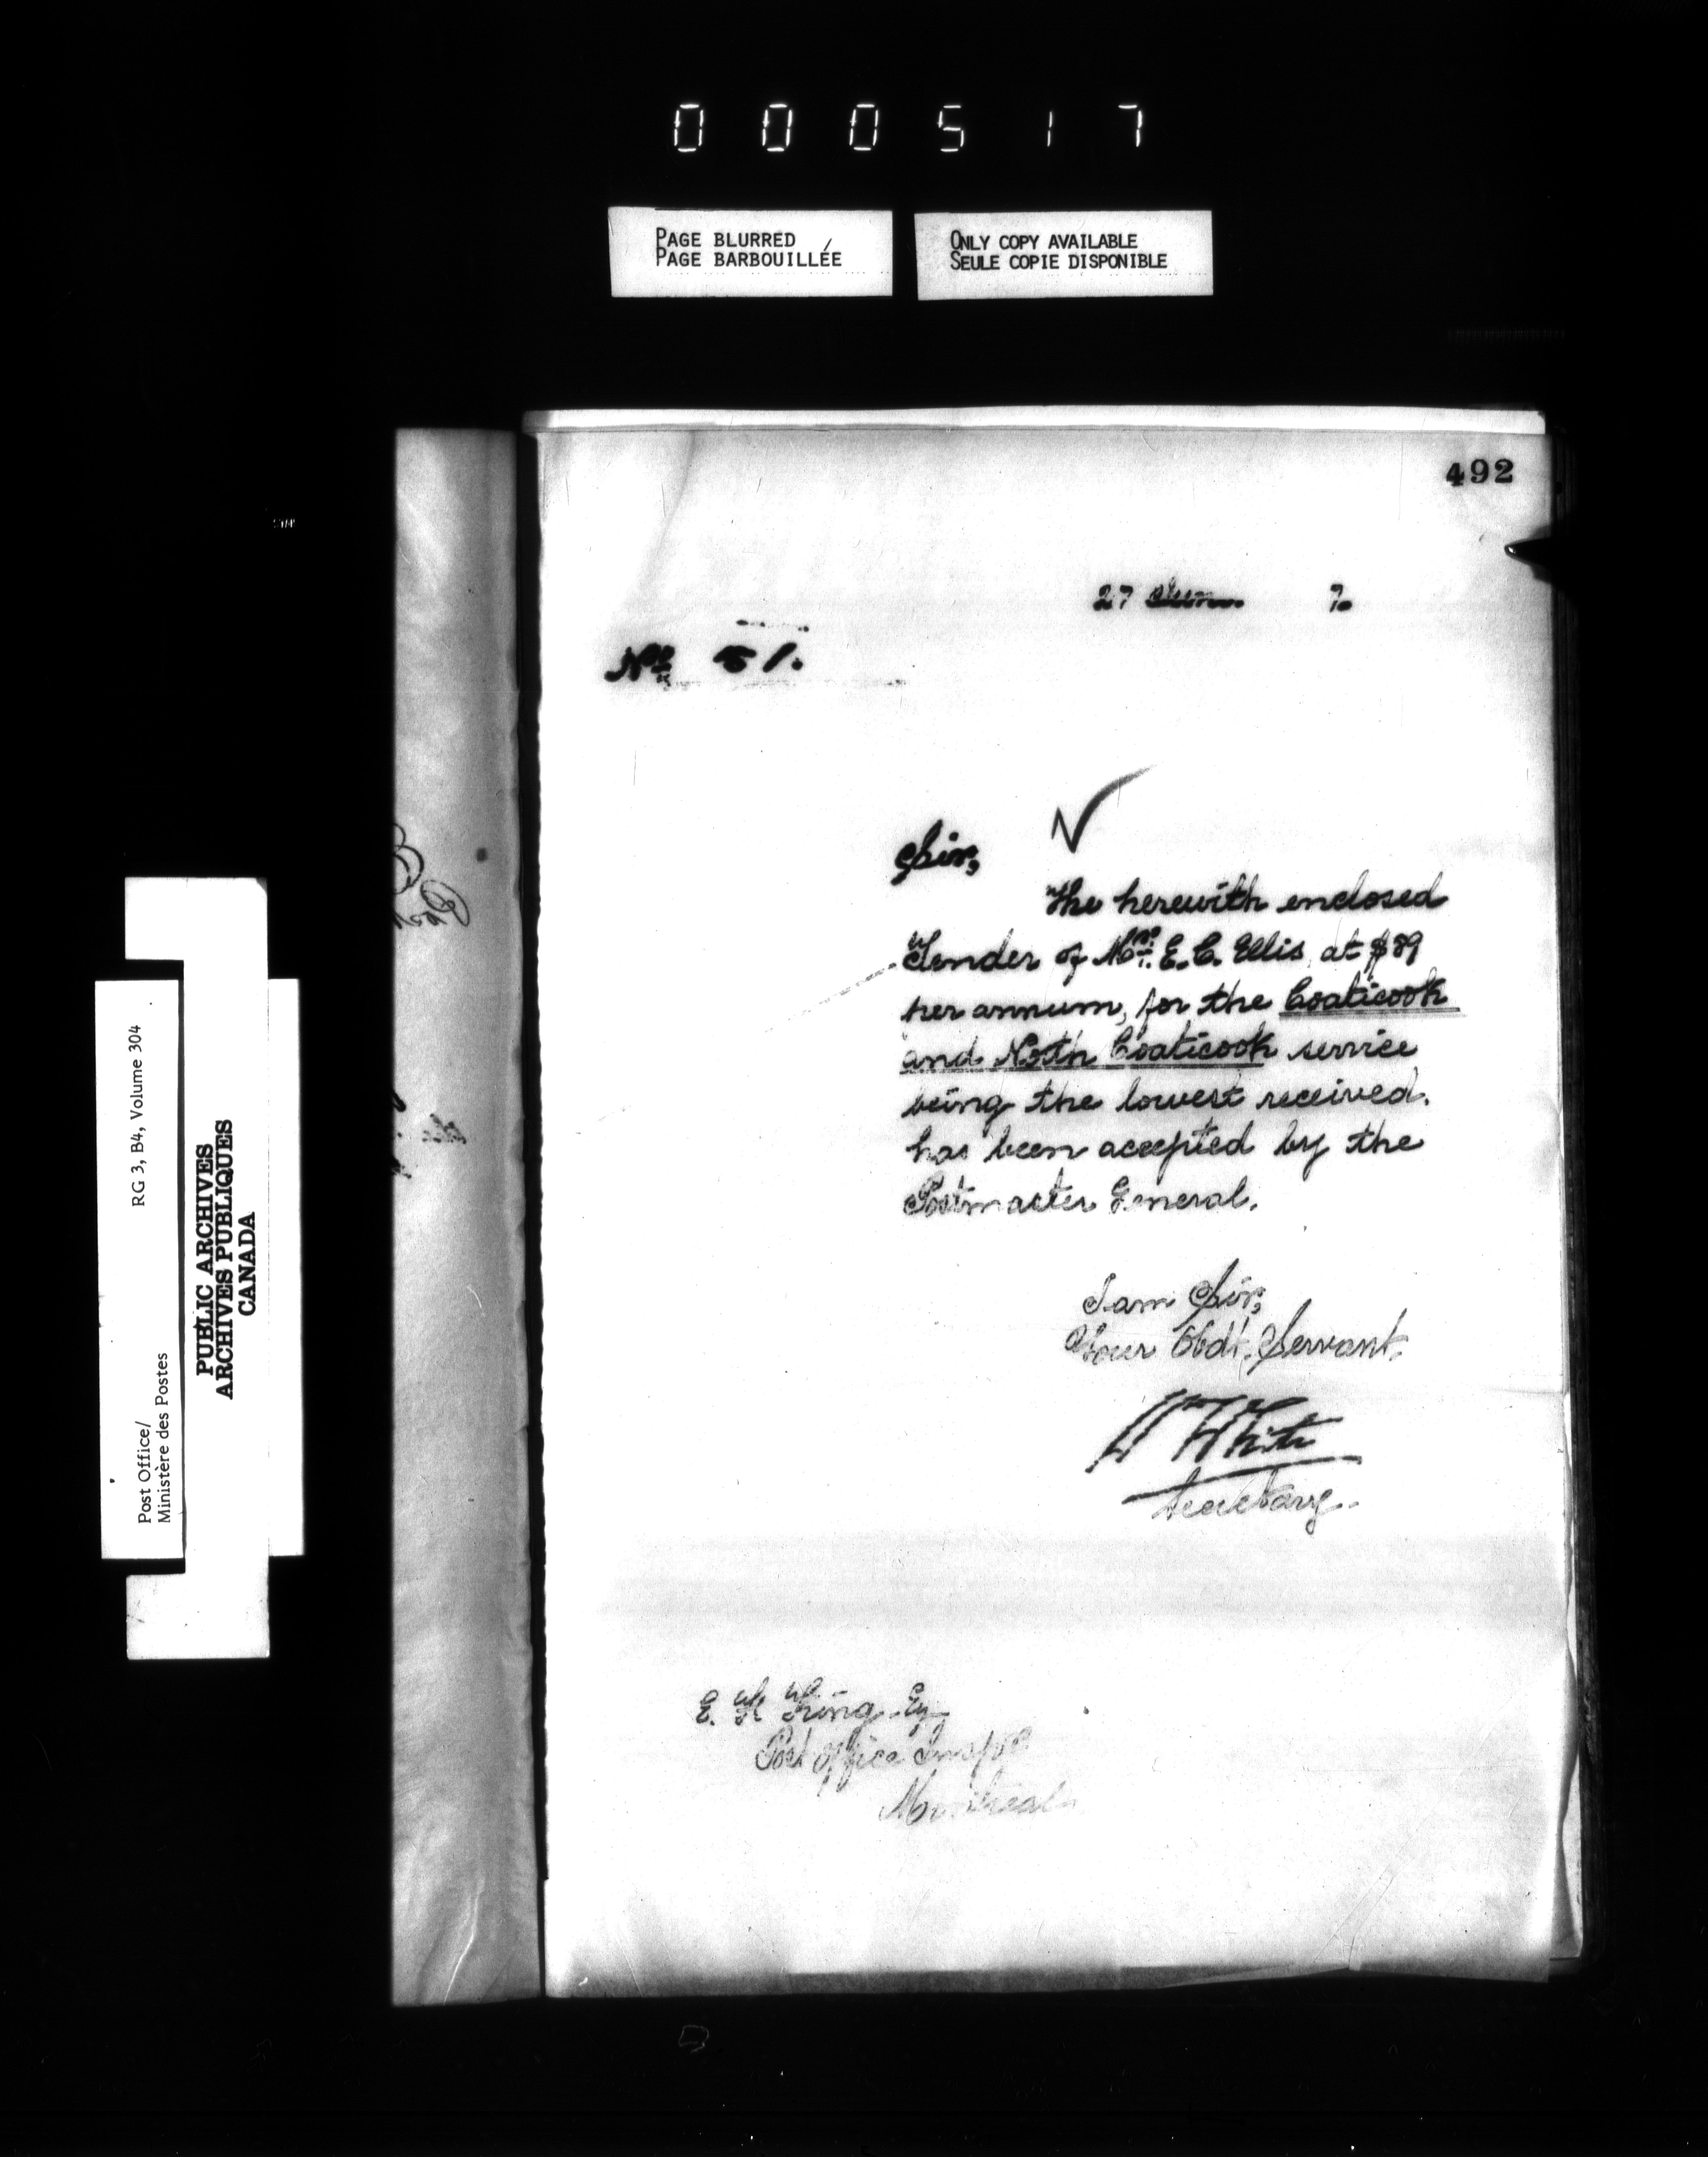 000517
PAGE BLURRED
PAGE BARBOUILLÉE
ONLY COPY AVAILABLE
SEULE COPIE DISPONIBLE
492
27 June 7
No 51.
Sir,
The herewith enclosed
Tender of Mrs. E. C. Ellis, at $89
per annum, for the Coaticook
and North Coaticook service
being the lowest received.
has been accepted by the
Postmaster General.
I am Sir,
Your Obdt. Servant.
W White
Secretary.
E. F. King Esq
Post Office Inspr
Montreal
Post Office/
Ministère des Postes
RG 3, B4, Volume 304
PUBLIC ARCHIVES
ARCHIVES PUBLIQUES
CANADA